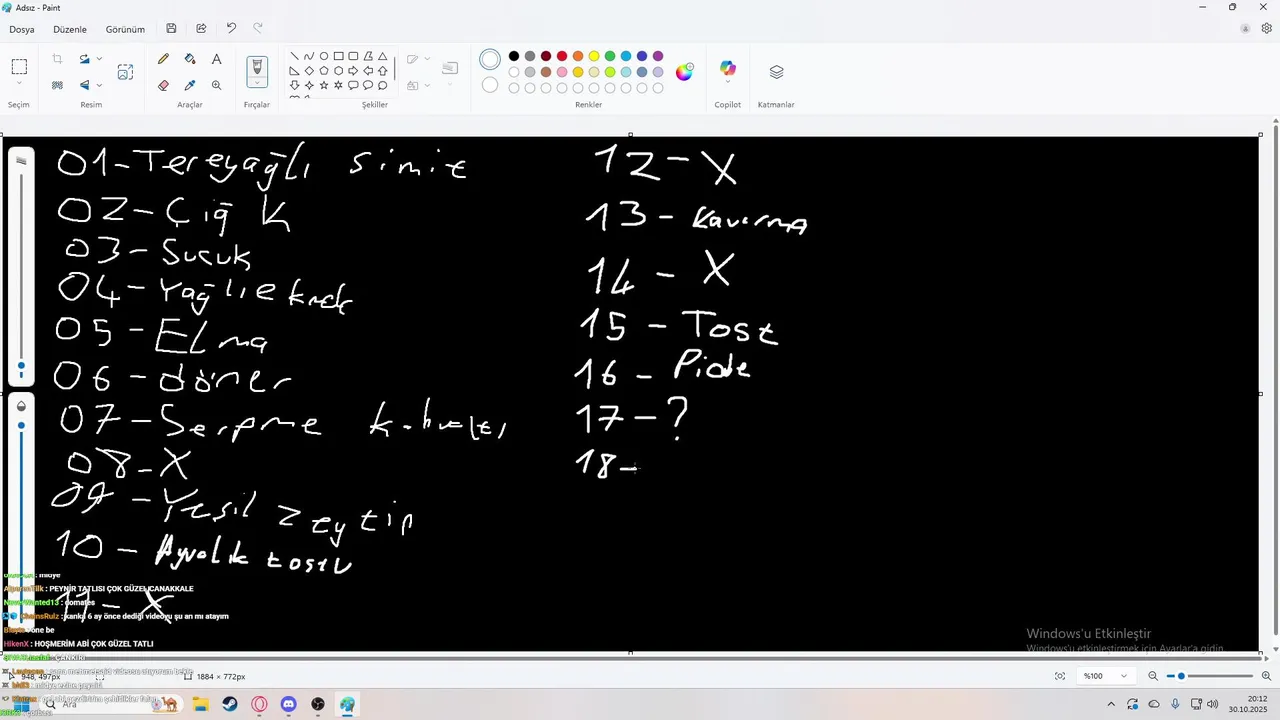 Adsız - Paint
Dosya Düzenle Görünüm
Seçim Resim Araçlar Fırçalar Şekiller Renkler Copilot Katmanlar
01-Tereyağlı simit
02-Çiğ K
03-Sucuk
04-Yağlı
05-Elma
06-döner
07-Serpme
08-X
09-Yeşil zeytin
10-Ayvalık tostu
11-X
12-X
13-Kavurma
14-X
15-Tost
16-Pide
17-?
18-
: midye
: PEYNİR TATLISI ÇOK GÜZEL ÇANAKKALE
: domates
: kanka 6 ay önce dediği videoyu şu an mı atayım
HikenX : HOŞMERİM ABİ ÇOK GÜZEL TATLI
: ÇANKIRI
Windows'u Etkinleştir
Windows'u etkinleştirmek için Ayarlar'a gidin.
948, 497px 1884 × 772px %100
Ara
20:12
30.10.2025